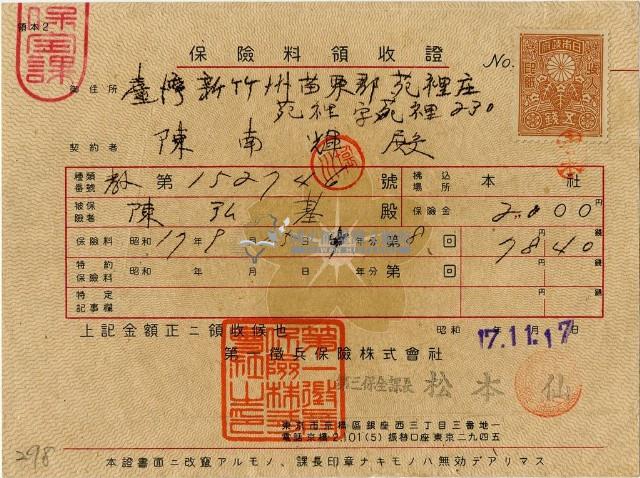 領本2
保全課
保險料領收證
No.
大日本帝國政府
收入印紙
五錢
御住所 臺灣新竹州苗栗郡苑裡庄
苑裡字苑裡 230
契約者 陳南輝 殿
種類番號 教 第 152746 號 拂込場所 本社
被保險者 陳弘基 殿 保險金 2000 円
保險料 昭和 17 年 9 月 日 年分 第 8 回 円 錢 7840
特約保險料 昭和 年 月 日 年分 第 回 円 錢
特定記事欄 円 錢
上記金額正ニ領收候也 昭和 年 月 日
17.11.17
第一徵兵保險株式會社
第三保全課長 松本 仙
東京市京橋區銀座西三丁目三番地一
電話京橋2101(5) 振替口座東京二九四五
298
本證書面ニ改竄アルモノ、課長印章ナキモノハ無効デアリマス